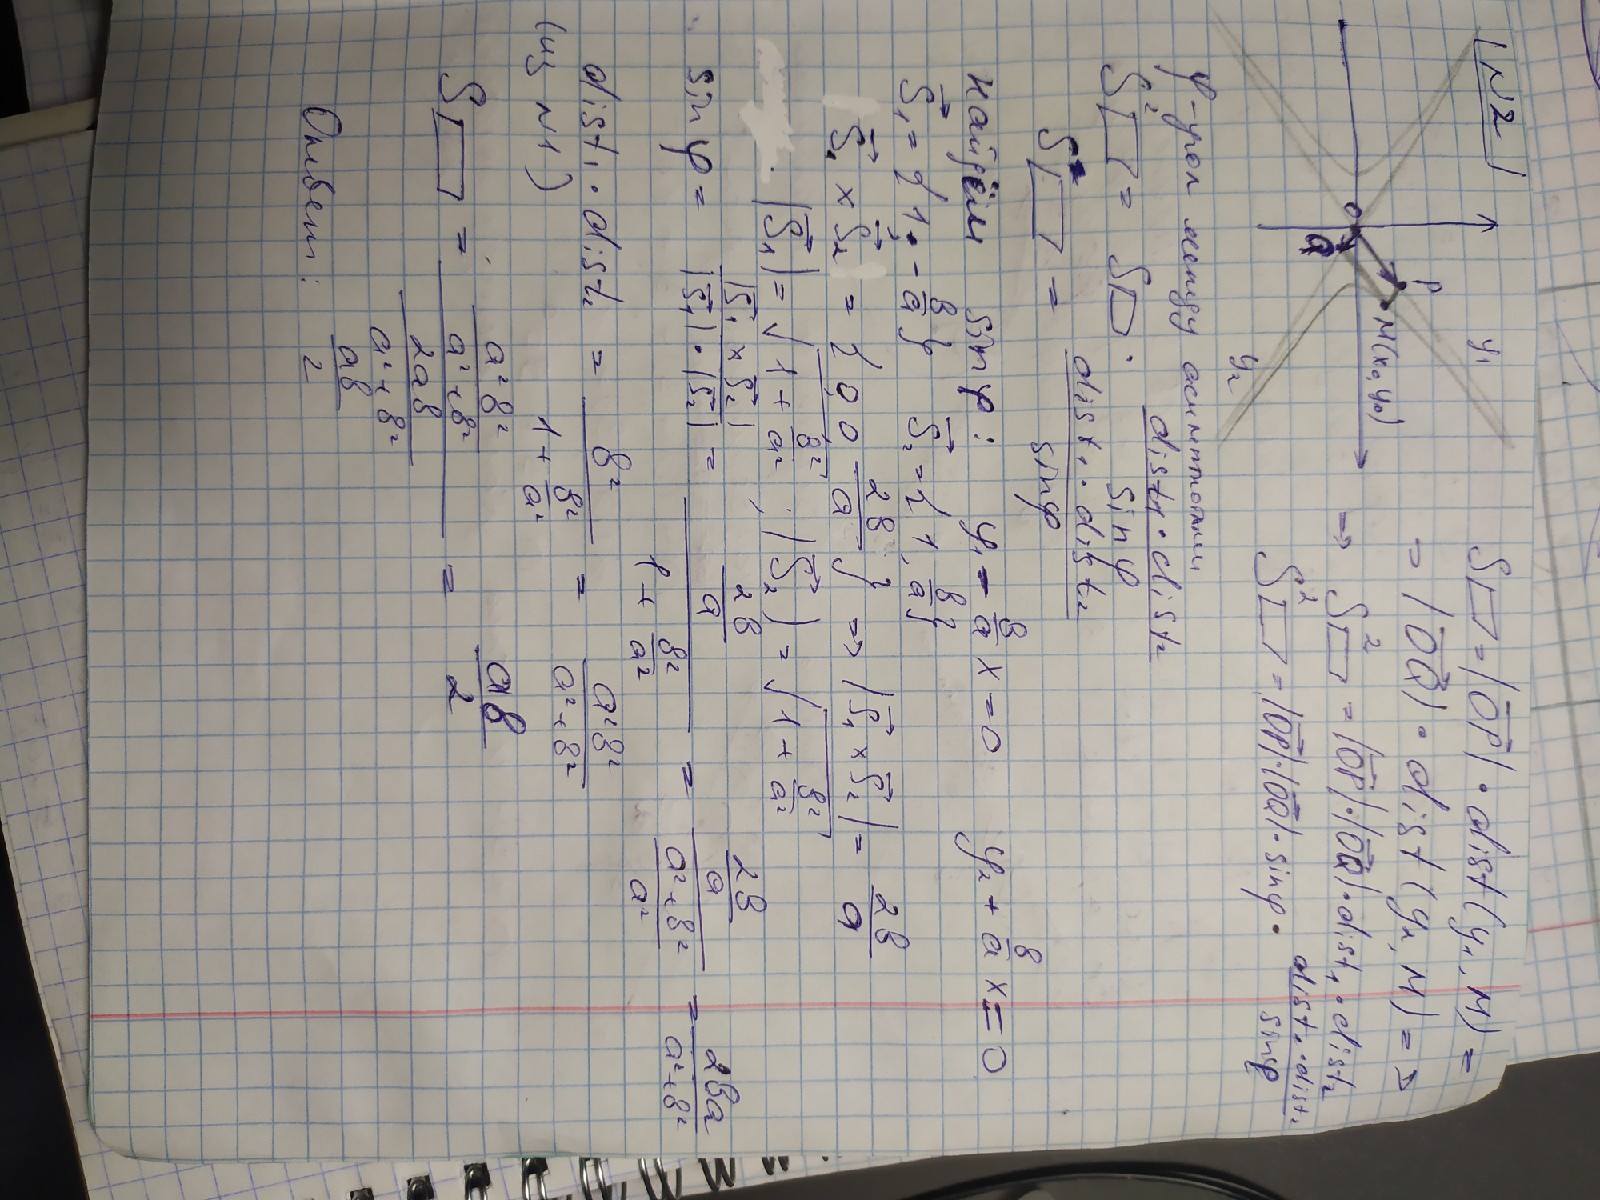 N2
y₁
P
M(x₀, y₀)
O
Q
y₂
S▱ = |OP| · dist(y₁, M) =
= |OQ| · dist(y₂, M) =>
=> S²▱ = |OP|·|OQ|·dist₁·dist₂
S²▱ = |OP|·|OQ|·sinφ· dist₁·dist₂ / sinφ
φ-угол между асимптотами
S²▱ = S▱ · dist₁·dist₂ / sinφ
S▱ = dist₁·dist₂ / sinφ
найдём sinφ: y₁ - b/a x = 0 y₂ + b/a x = 0
S₁ = {1; -b/a} S₂ = {1, b/a}
S₁ × S₂ = {0, 0, 2b/a} => |S₁ × S₂| = 2b/a
|S₁| = √(1 + b²/a²) ; |S₂| = √(1 + b²/a²)
sinφ = |S₁ × S₂| / |S₁|·|S₂| = (2b/a) / (1 + b²/a²) = (2b/a) / ((a²+b²)/a²) = 2ba / (a²+b²)
dist₁·dist₂ = b² / (1 + b²/a²) = a²b² / (a²+b²)
(из N1)
S▱ = (a²b² / (a²+b²)) / (2ab / (a²+b²)) = ab/2
Ответ: ab/2